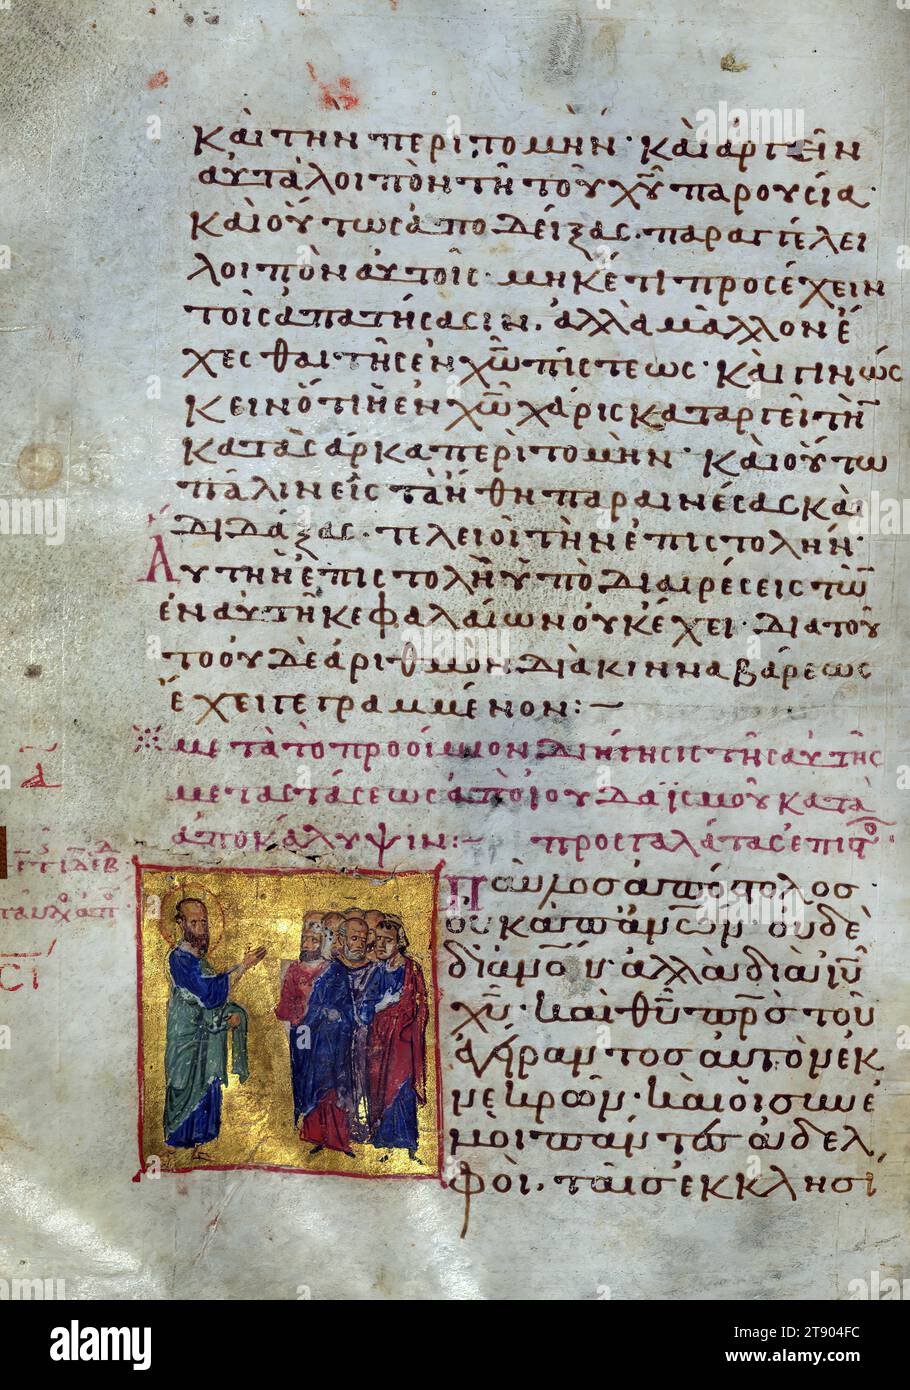 καὶ τὴν περιτομὴν· καὶ ἀργεῖν
αὐτὰ λοιπὸν τῆ τοῦ χῦ παρουσία·
καὶ οὕτως ἀποδείξας· παραγγέλει
λοιπὸν αὐτοῖς· μηκέτι προσέχειν
τοῖς ἀπατήσασιν, ἀλλὰ μᾶλλον ἔ
χεσθαι τῆς ἐν χῶ πίστεως· καὶ γινώς
κειν ὅτι ἡ ἐν χῶ χάρις καταργεῖ τὴ
κατὰ σάρκα περιτομὴν· καὶ οὕτω
πάλιν εἰς τὰ ἤθη παραινέσας καὶ
διδάξας· τελειοῖ τὴν ἐπιστολήν·
Αὐτὴ ἡ ἐπιστολὴ ὑποδιαιρέσεις τῶ
ἐν αὐτῆ κεφαλαίων οὐκ ἔχει· διὰ τοῦ
το οὐδὲ ἀριθμὸν διὰ κινναβάρεως
ἔχει γεγραμμένον:–
μετὰ τὸ προοίμιον διήγησις τῆς αὐτῆς
μεταστάσεως ἀπὸ ἰουδαϊσμοῦ κατὰ
ἀποκάλυψιν:– πρὸς γαλάτας ἐπιστο
Παῦλος ἀπόστολος·
οὐκ ἀπ' ἀνων· οὐδὲ
δι' ἀνου· ἀλλὰ διὰ ιῦ
χῦ· καὶ θῦ πρς τοῦ
ἐγείραντος αὐτὸν ἐκ
νεκρῶν· καὶ οἱ σὺν ἐ
μοὶ πάντες ἀδελ
φοὶ, ταῖς ἐκκλησί
alamy
Image ID: 2T904FC
www.alamy.com